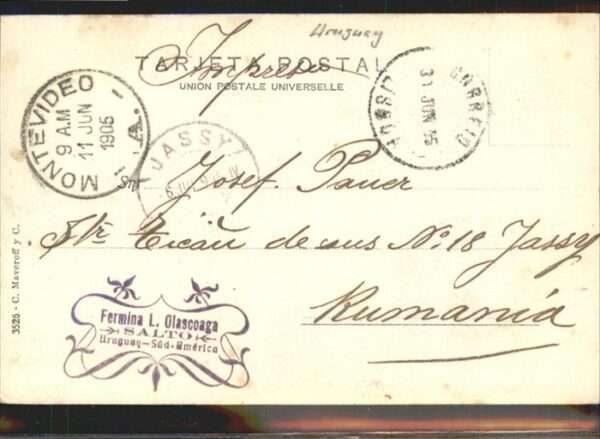 Uruguay
TARJETA POSTAL
Impreso
UNION POSTALE UNIVERSELLE
MONTEVIDEO
9 AM
11 JUN
1905
A.
CORREIO
31 JUN 05
JASSY
Sr
Josef Pauer
Str Ticäu de sus No. 18 Jassy
Rumania
Fermina L. Olascoaga
SALTO
Uruguay-Süd-América
3525 - C. Maveroff y C.